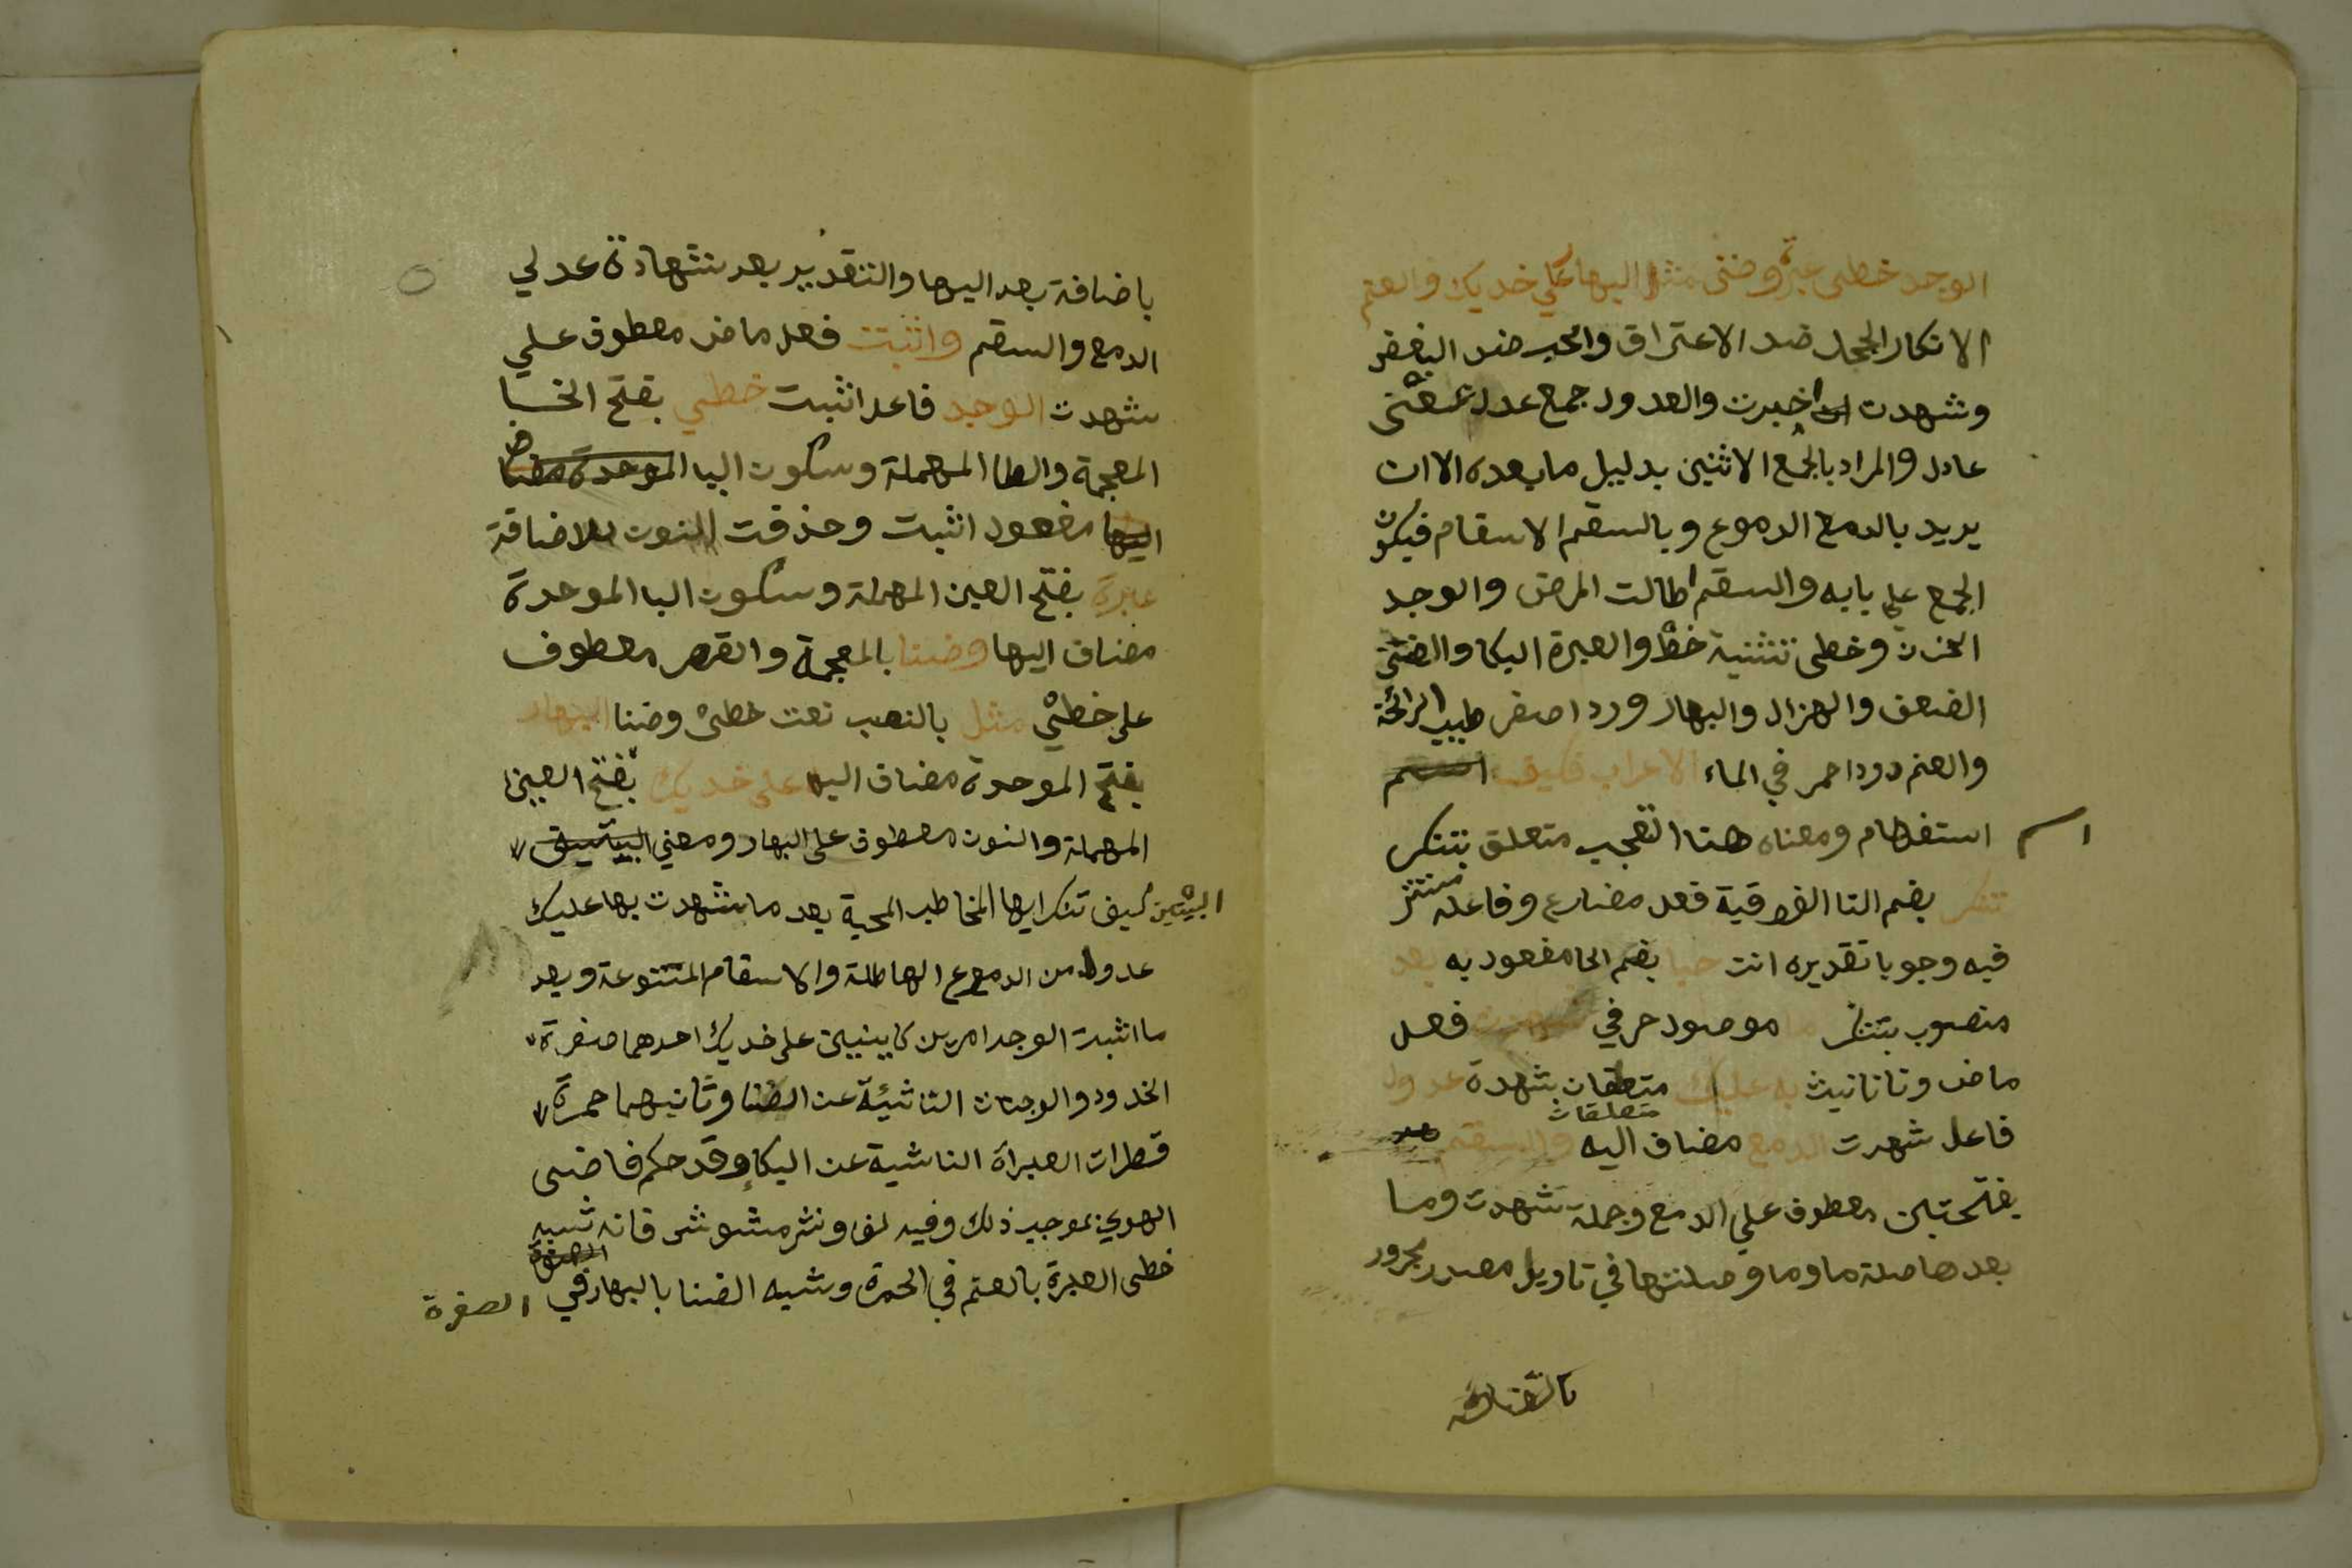 الوجد خطى عبرة وضنى مثل البهار على خديك والعنم
الانكار الجحد ضد الاعتراف والحب ضد البغض
وشهدت اى اخبرت والعدول جمع عدل بمعنى
عادل والمراد بالجمع الاثنين بدليل ما بعده الا ان
يريد بالدمع الدموع وبالسقم الاسقام فيكون
الجمع على بابه والسقم اطالت المرض والوجد
الحزن وخطى تثنية خط والعبرة البكا والضنى
الضعف والهزال والبهار ورد اصفر طيب الرائحة
والعنم دود احمر في الماء الاعراب فكيف اسم
اسم استفهام ومعناه هنا التعجب متعلق بتنكر
تنكر بضم التا الفوقية فعل مضارع وفاعله مستتر
فيه وجوبا تقديره انت حبا بضم الحا مفعول به بعد
منصوب بتنكر ما موصول حرفي شهدت فعل
ماض وتا تانيث به عليك متعلقان بشهدة عدول
متعلقان
فاعل شهدت الدمع مضاف اليه والسقم
بفتحتين معطوف علي الدمع وجملة شهدت وما
بعدها صلة ما وما وصلتها في تاويل مصدر مجرور
باضافة
باضافة بعد اليها والتقدير بعد شهادة عدلي
الدمع والسقم واثبتت فعل ماض معطوف علي
شهدت الوجد فاعل اثبت خطي بفتح الخا
المعجمة والطا المهملة وسكون اليا الموحدة مضاف
اليها مفعول اثبت وحذفت النون للاضافة
عبرة بفتح العين المهملة وسكون البا الموحدة
مضاف اليها وضنا بالمعجمة والقصر معطوف
على خطيْ مثل بالنصب نعت خطىْ وضنا البهار
بفتح الموحدة مضاف اليها على خديك بفتح العين
المهملة والنون معطوف على البهار ومعني البيتين
البيتين كيف تنكر ايها المخاطب المحبة بعد ما شهدت بها عليك
عدول من الدموع الهاطلة والاسقام المتنوعة وبعد
ما اثبت الوجد امرين كاينين على خديك احدهما صفرة
الخدود والوجنات الناشئة عن الضنا وثانيهما حمرة
قطرات العبراة الناشية عن البكاء وقد حكم قاضى
الهوي بموجب ذلك وفيه لف ونشر مشوش فانه شبه
خطى العبرة بالعنم في الحمرة وشبه الضنا بالبهار في الصفرة